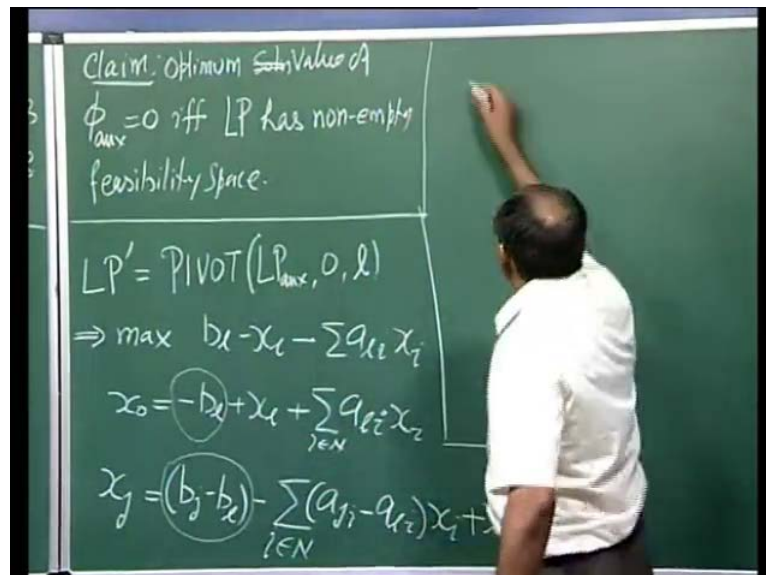 Claim: Optimum Value of
ϕ_aux = 0 iff LP has non-empty
feasibility space.
LP' = PIVOT(LP_aux, 0, l)
⇒ max b_l - x_l - Σ a_li x_i
x_0 = -b_l + x_l + Σ_{i∈N} a_li x_i
x_j = (b_j - b_l) - Σ_{i∈N} (a_ji - a_li) x_i +